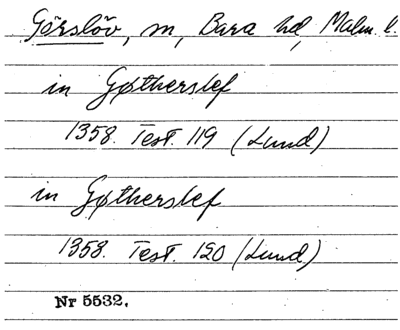 Görslöv, m, Bara hd, Malm. l.
in Gøtherslef
1358. Test. 119 (Lund)
in Gøtherslef
1358. Test. 120 (Lund.)
Nr 5532.